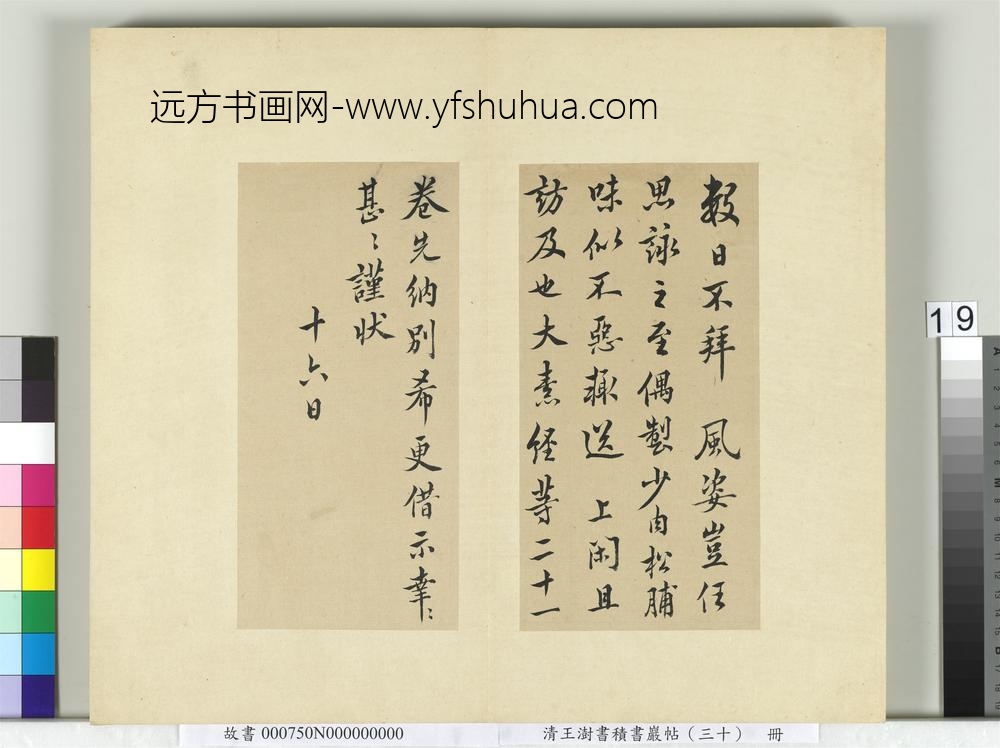 远方书画网-www.yfshuhua.com
數日不拜 風姿豈任
思詠之至偶製少肉松脯
味似不惡輒送 上閑且
訪及也大素經等二十一
卷先納別希更借示幸〻
甚〻謹狀
十六日
19
故書 000750N000000000
清王澍書積書巖帖（三十） 冊